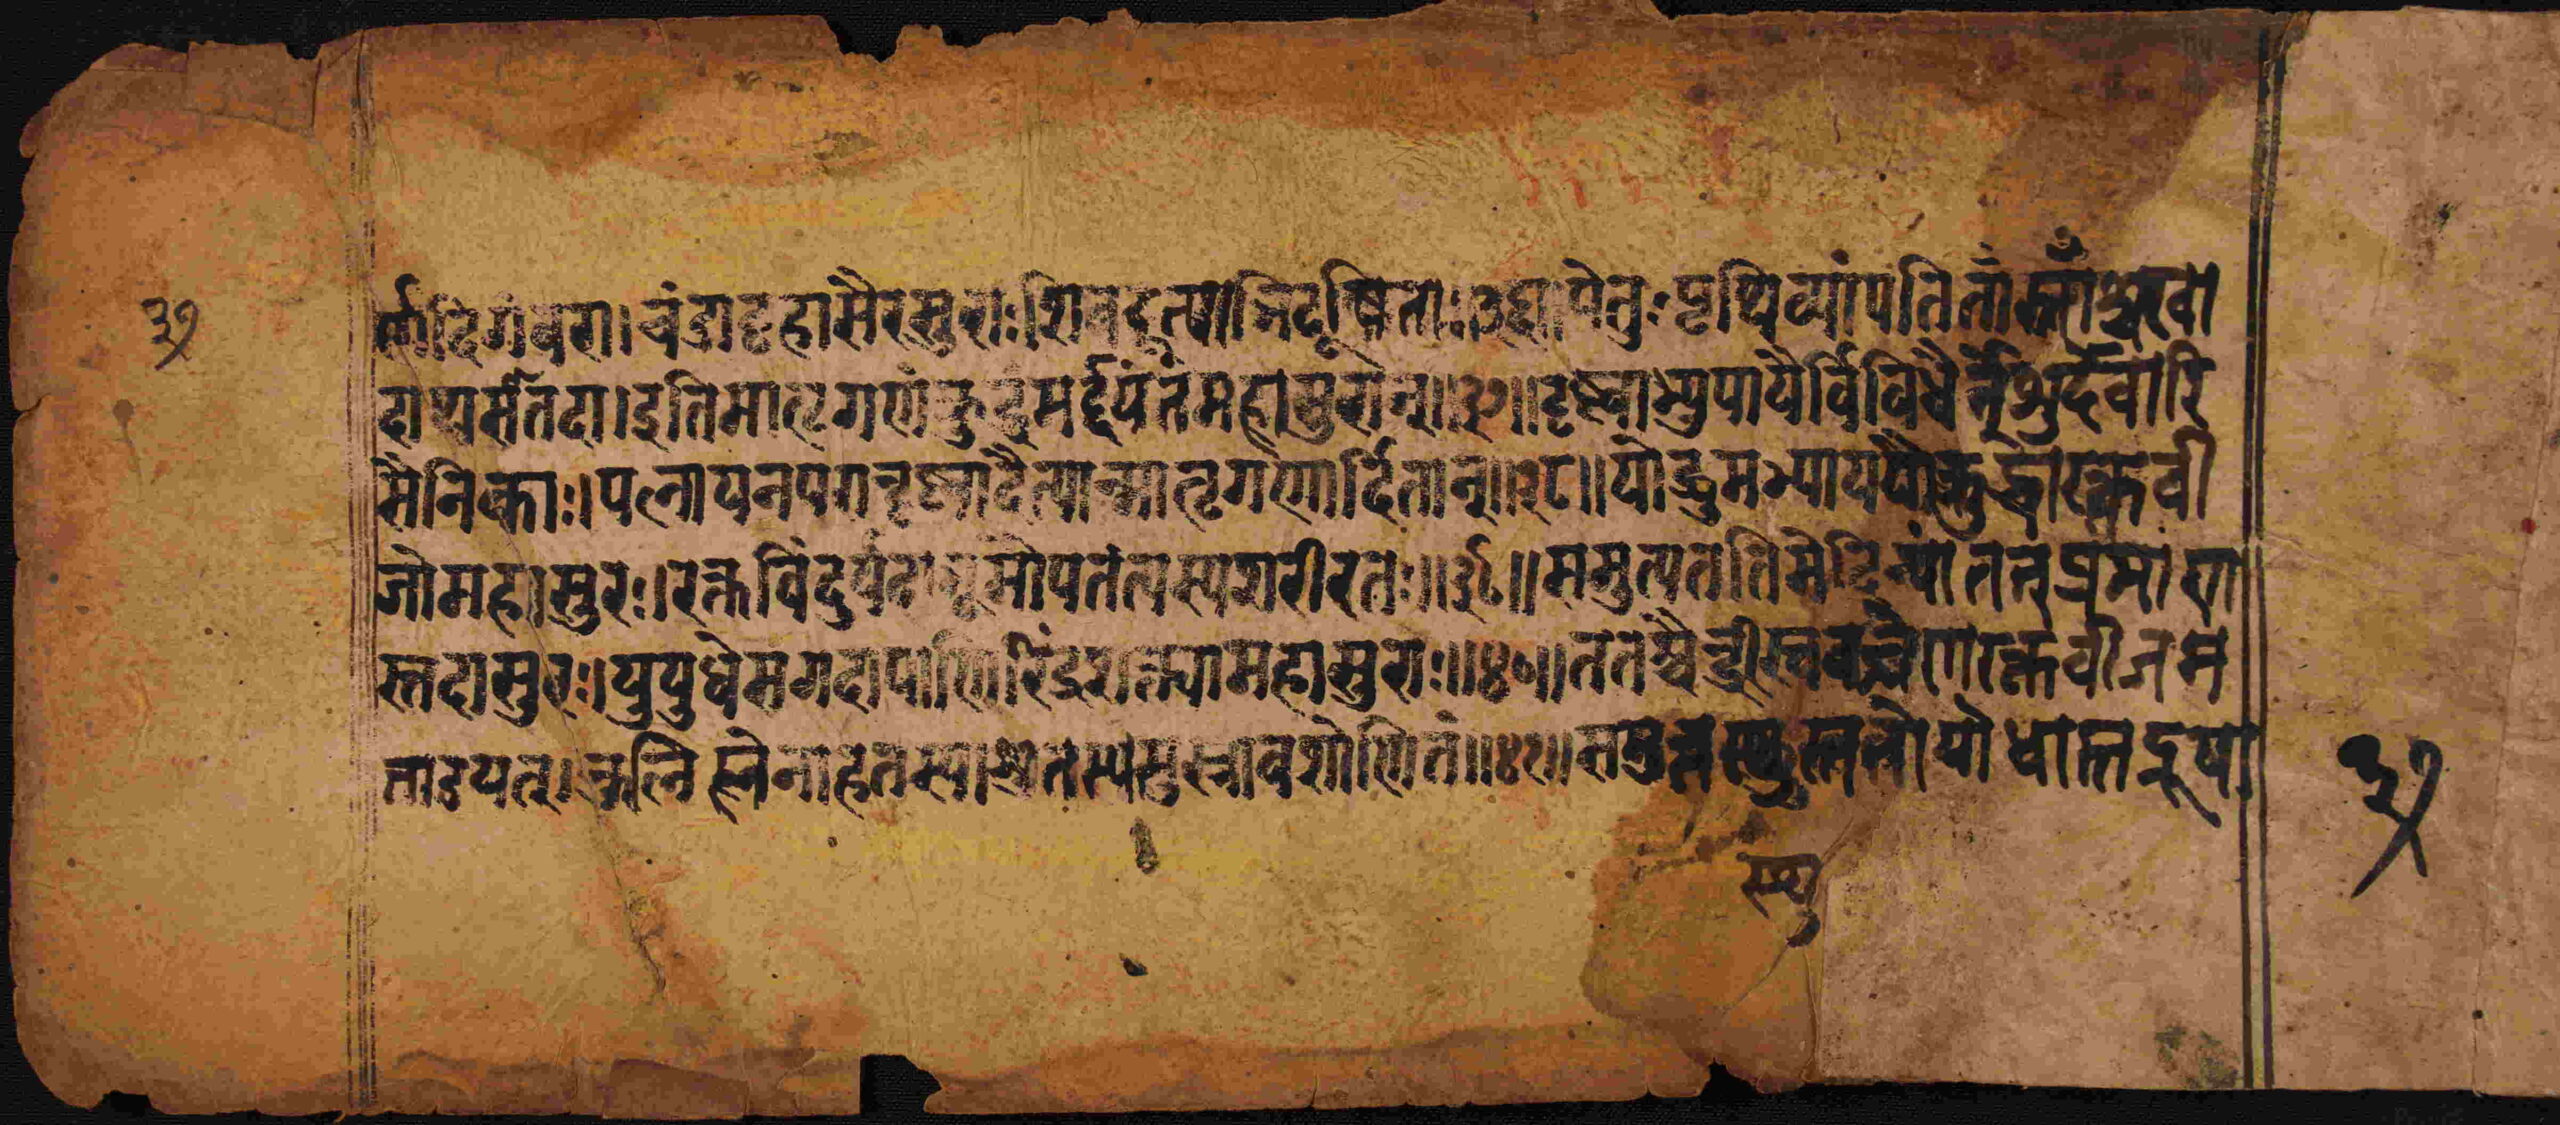 ३७
र्णादिगंबरा।चंडाट्टहासैरसुराःशिवदूत्याभिदूषिताः॥३६॥पेतुःपृथिव्यांपतितांस्तांश्चखा
दाथसातदा।इतिमातृगणंक्रुद्धंमर्द्दयंतंमहासुरान्॥३७॥दृष्ट्वाभ्युपायैर्विविधैर्नेशुर्देवारि
सैनिकाः।पलायनपरान्दृष्ट्वादैत्यान्मातृगणार्दितान्॥३८॥योद्धुमभ्याययौक्रुद्धोरक्तवी
जोमहासुरः।रक्तविंदुर्यदाभूमौपतंत्यस्यशरीरतः॥३९॥समुत्पततिमेदिन्यांतत्प्रमाण
स्तदासुरः।युयुधेसगदापाणिरिंद्रशक्त्यामहासुरः॥४०॥ततश्चैन्द्रीस्ववज्रेणरक्तवीजम
ताडयत्।कुलिशेनाहतस्याशुतस्यसुस्रावशोणितं॥४१॥समुत्तस्थुस्ततोयोधास्तद्रूपा
स्थु
३७